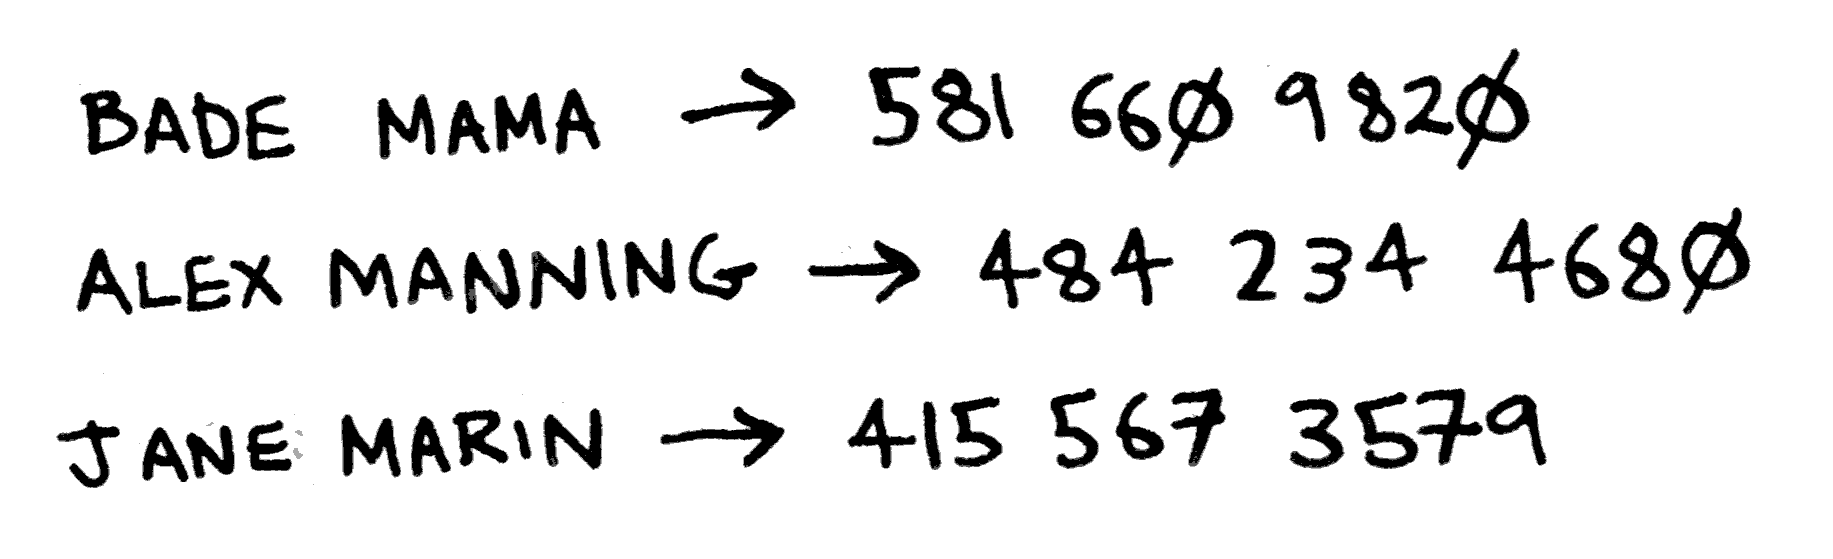 BADE MAMA → 581 660 9820
ALEX MANNING → 484 234 4680
JANE MARIN → 415 567 3579